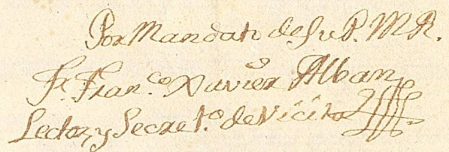 Por Mandato de S. P. M. R.
Fr. Franco. Xavier Alban
Lector, y Secreto. de Vicita